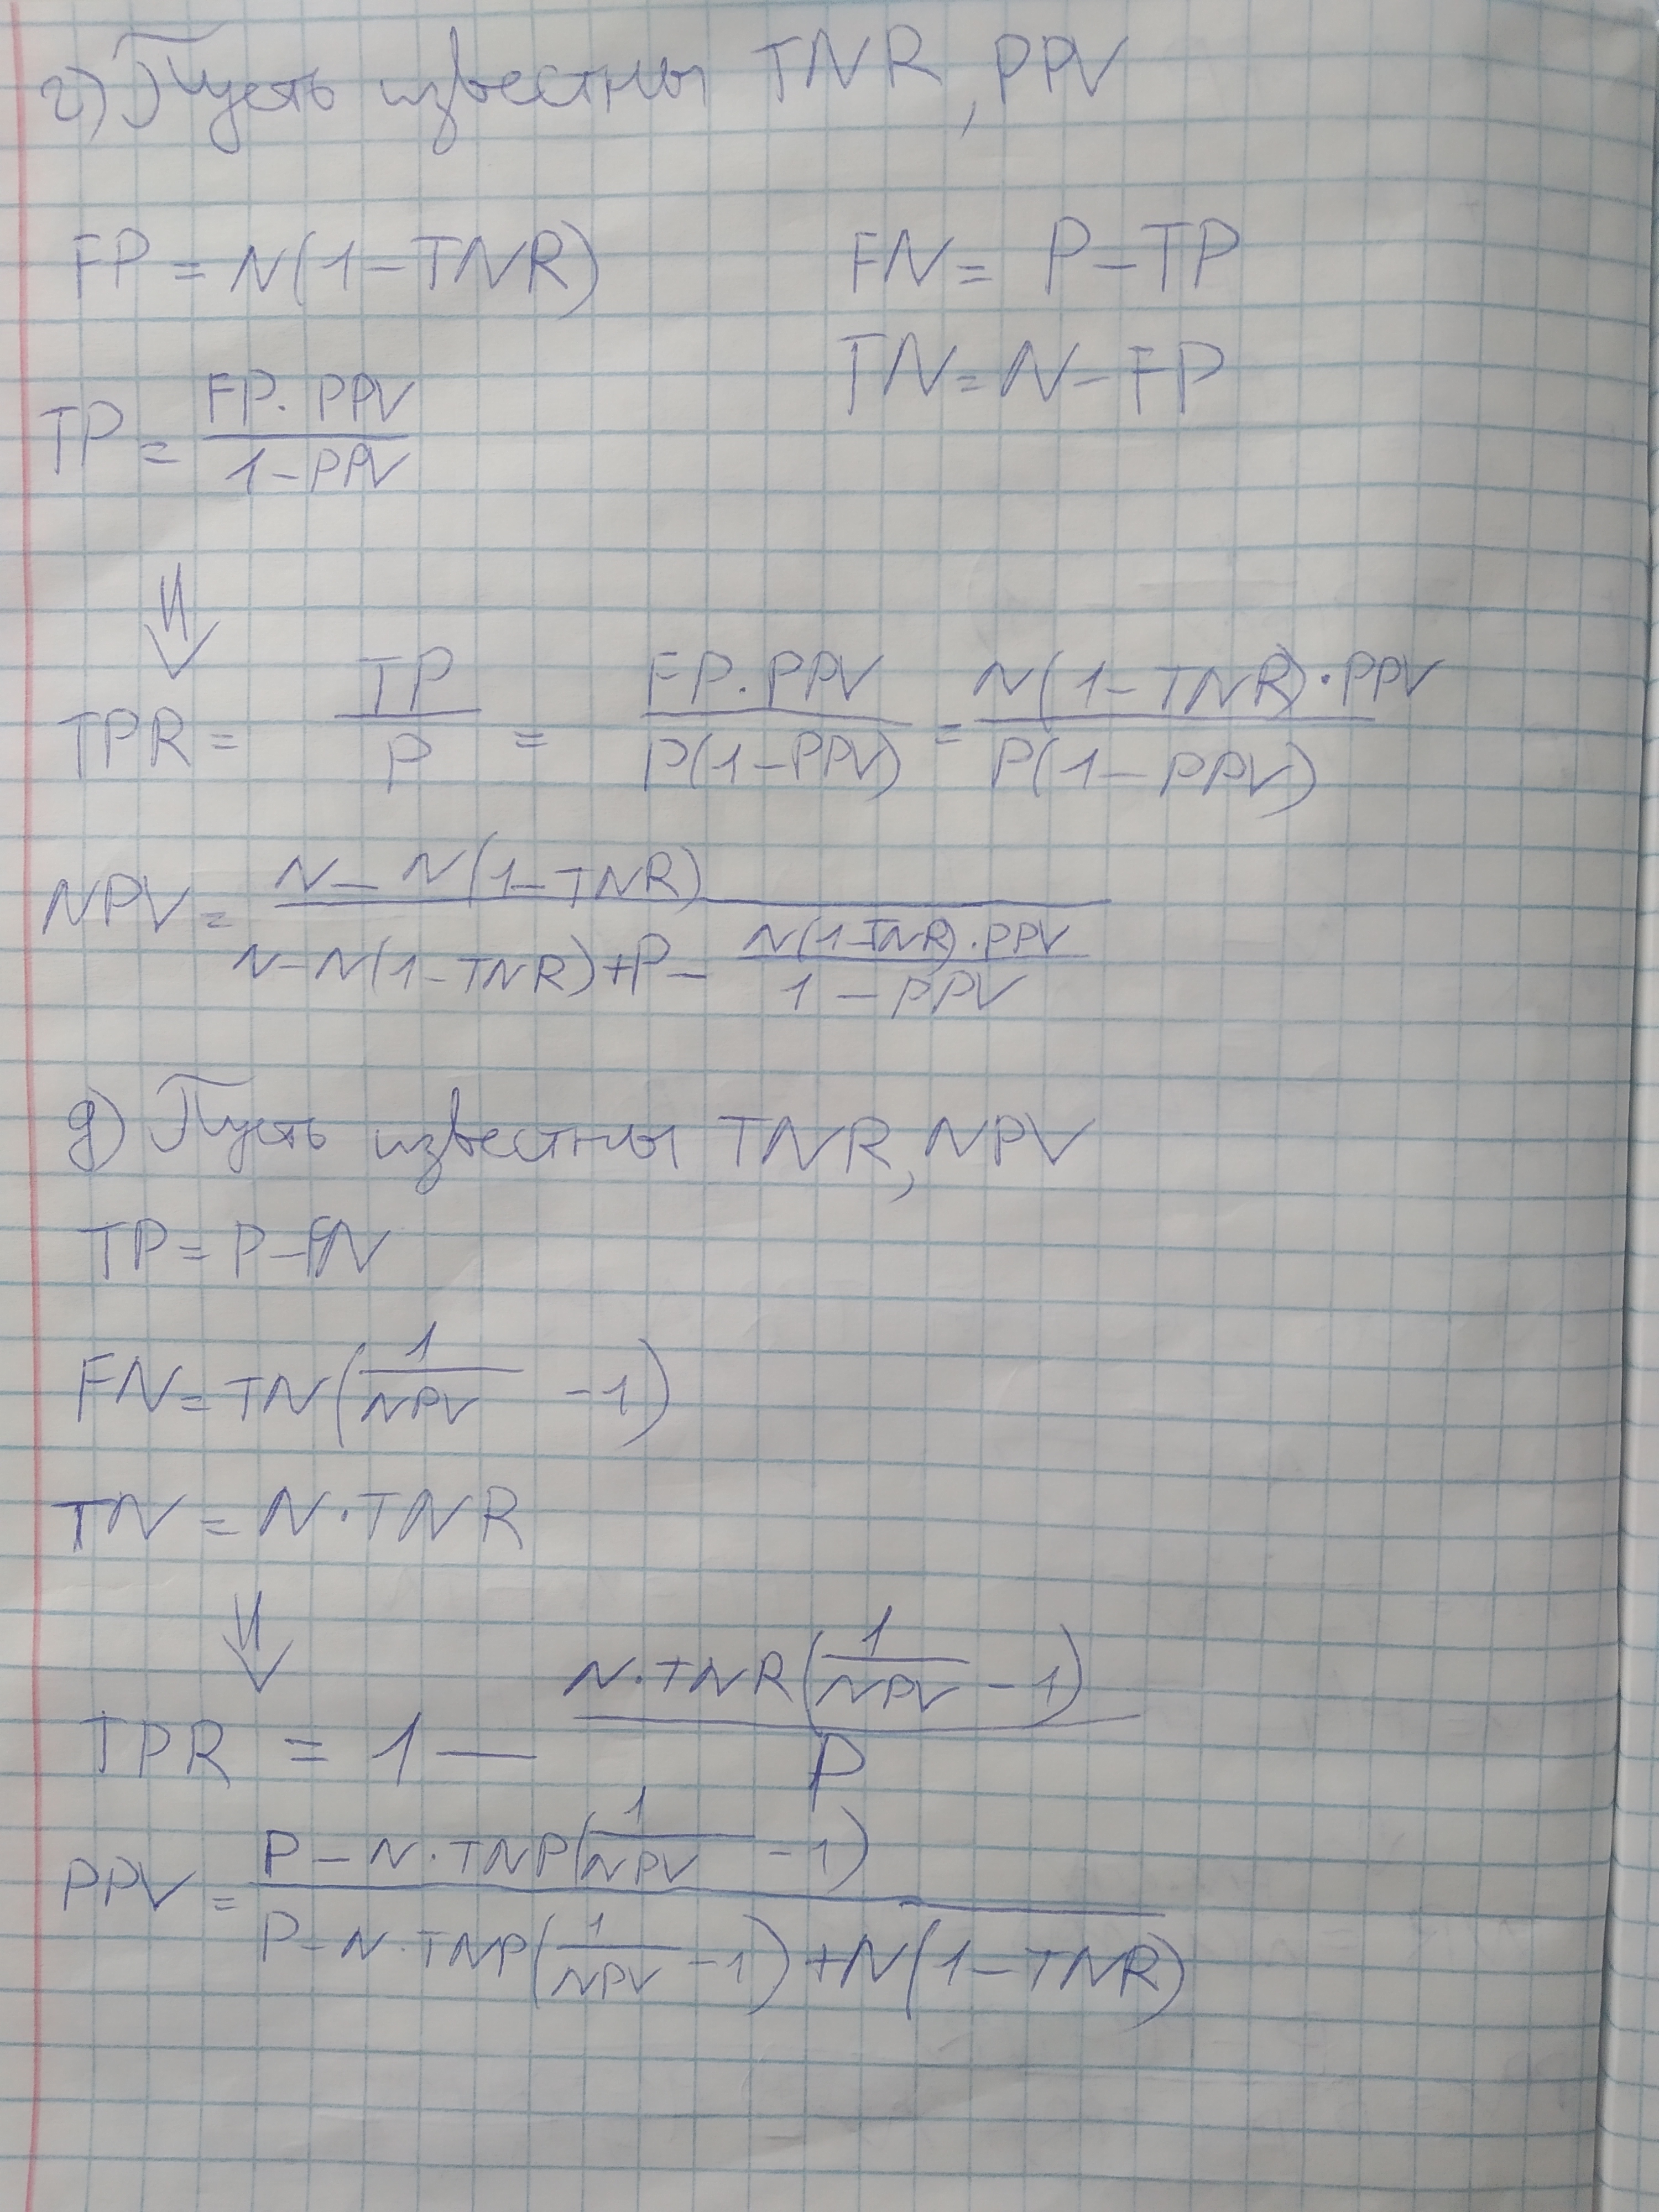 г) Пусть известны TNR, PPV
FP = N(1-TNR)
FN = P-TP
TN = N-FP
TP = FP·PPV / 1-PPV
⇓
TPR = TP / P = FP·PPV / P(1-PPV) = N(1-TNR)·PPV / P(1-PPV)
NPV = N-N(1-TNR) / N-N(1-TNR)+P- N(1-TNR)·PPV / 1-PPV
д) Пусть известны TNR, NPV
TP = P-FN
FN = TN(1/NPV -1)
TN = N·TNR
⇓
TPR = 1 - N·TNR(1/NPV -1) / P
PPV = P-N·TNP(1/NPV -1) / P-N·TNP(1/NPV -1)+N(1-TNR)